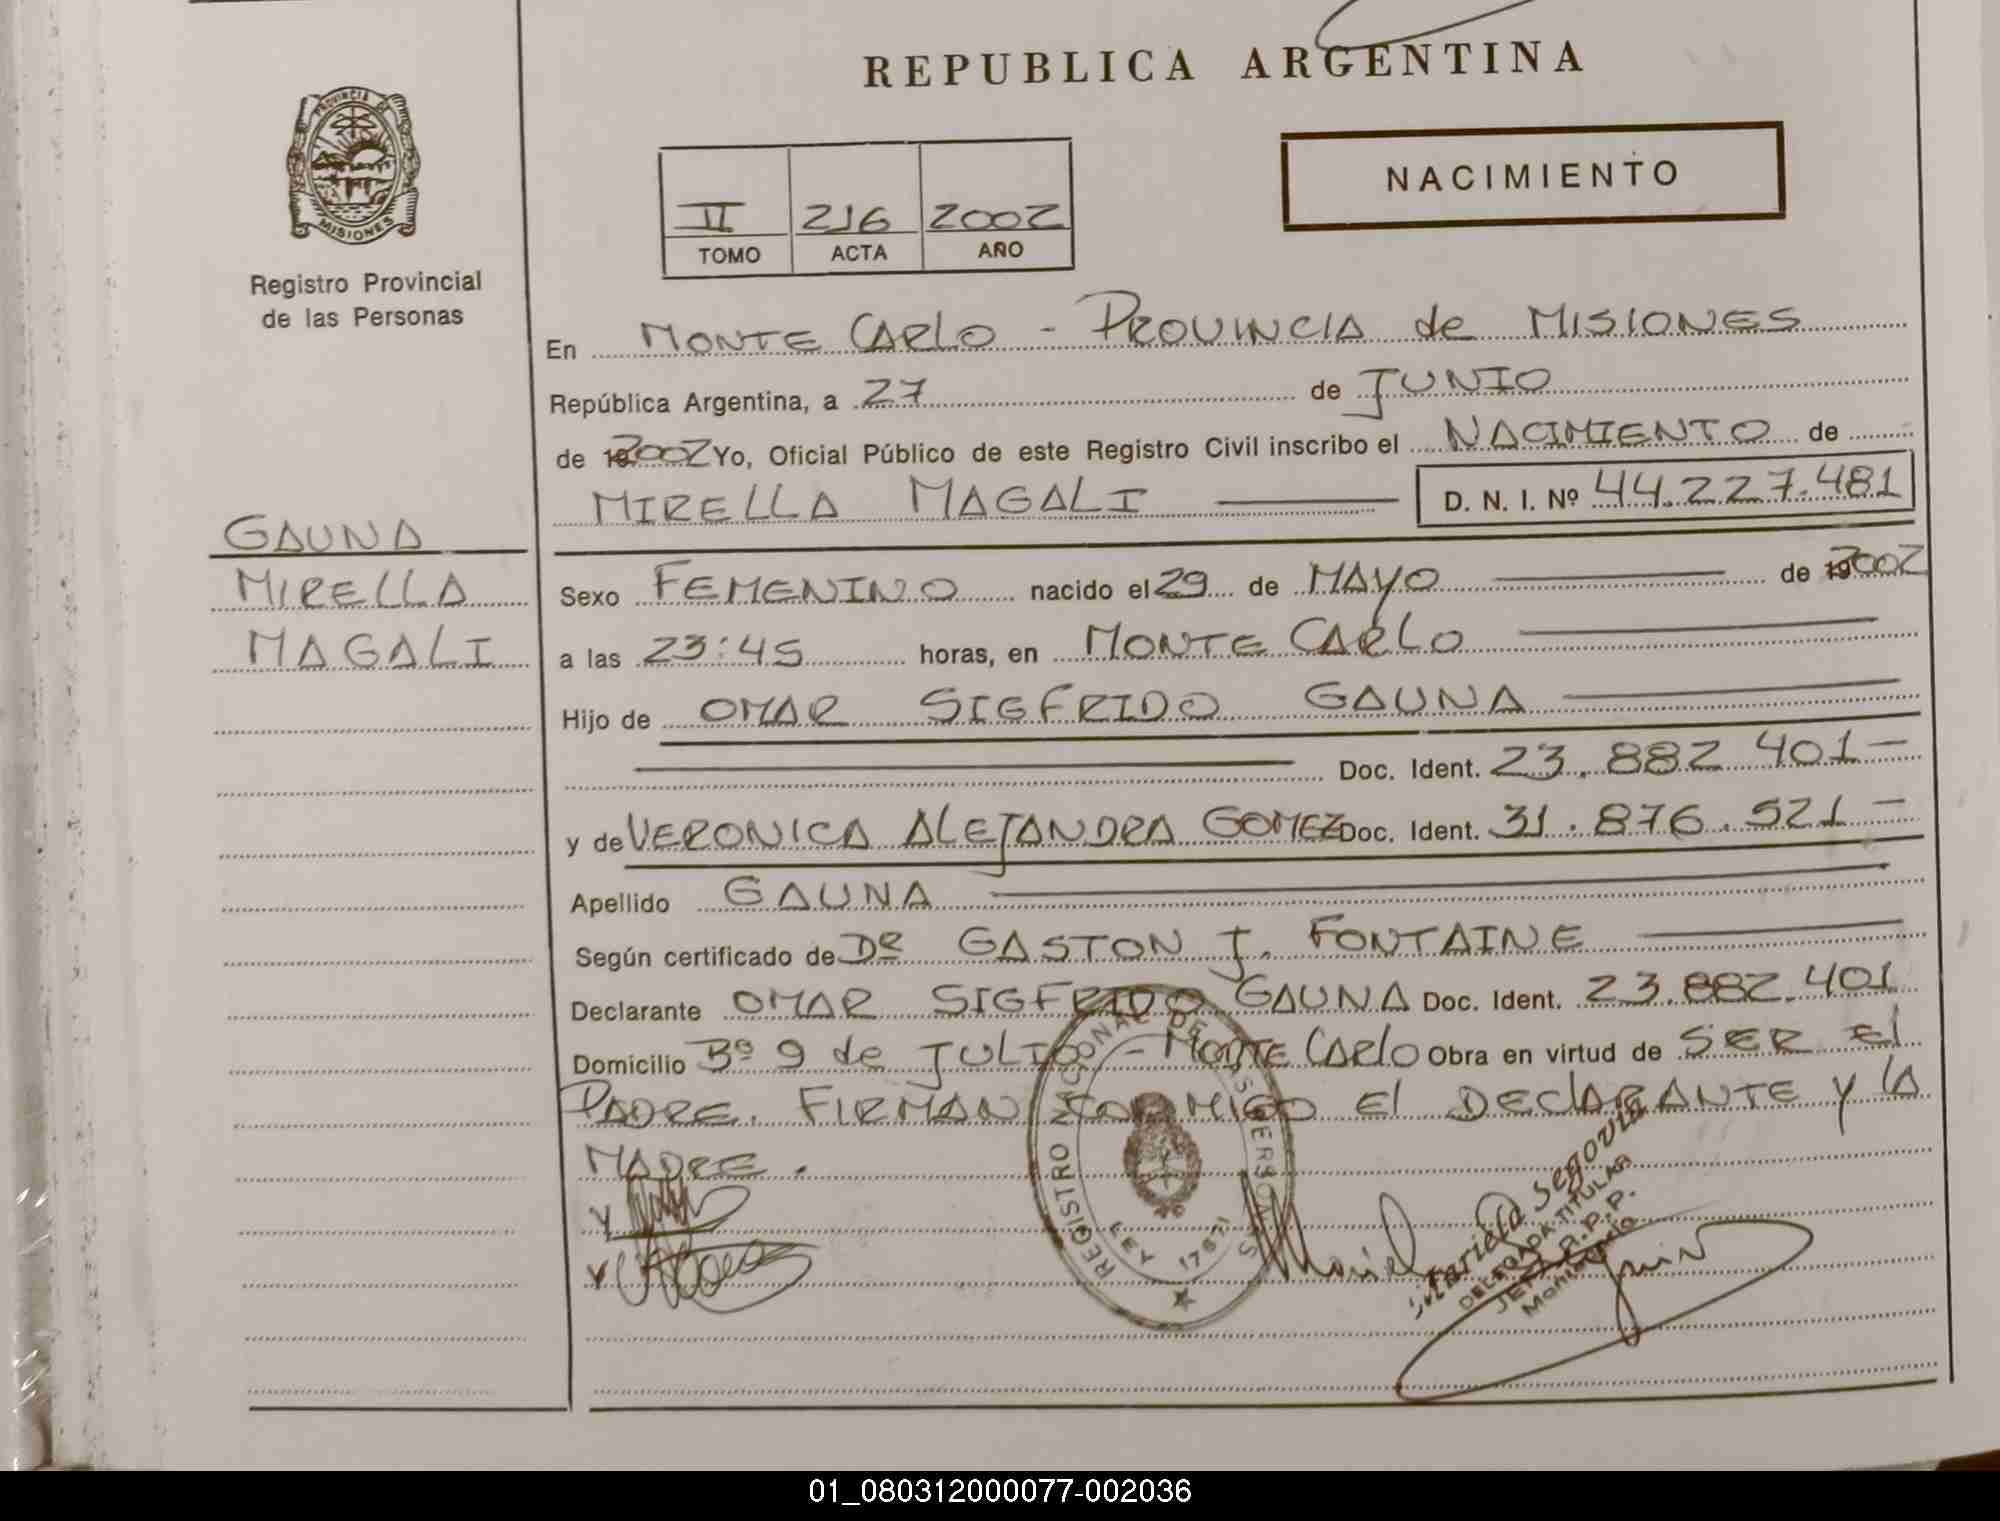 REPUBLICA ARGENTINA
PROVINCIA DE
MISIONES
Registro Provincial
de las Personas
NACIMIENTO
II 216 2002
TOMO ACTA AÑO
En MONTE CARLO - PROVINCIA de MISIONES
República Argentina, a 27 de JUNIO
de 2002 Yo, Oficial Público de este Registro Civil inscribo el NACIMIENTO de
MIRELLA MAGALI D. N. I. Nº 44.227.481
GAUNA
MIRELLA
MAGALI
Sexo FEMENINO nacido el 29 de MAYO de 2002
a las 23:45 horas, en MONTE CARLO
Hijo de OMAR SIGFRIDO GAUNA
Doc. Ident. 23.882.401-
y de VERONICA ALEJANDRA GOMEZ Doc. Ident. 31.876.521-
Apellido GAUNA
Según certificado de Dr GASTON J. FONTAINE
Declarante OMAR SIGFRIDO GAUNA Doc. Ident. 23.882.401
Domicilio Bº 9 de JULIO - MONTE CARLO Obra en virtud de SER El
PADRE. FIRMAN CONMIGO El DEClARANTE y lA
MADRE.
REGISTRO NACIONAL DE LAS PERSONAS
LEY 17671
Mariela Segovia
DELEGADA TITULAR
JEF. R.P.P.
Montecarlo
01_080312000077-002036